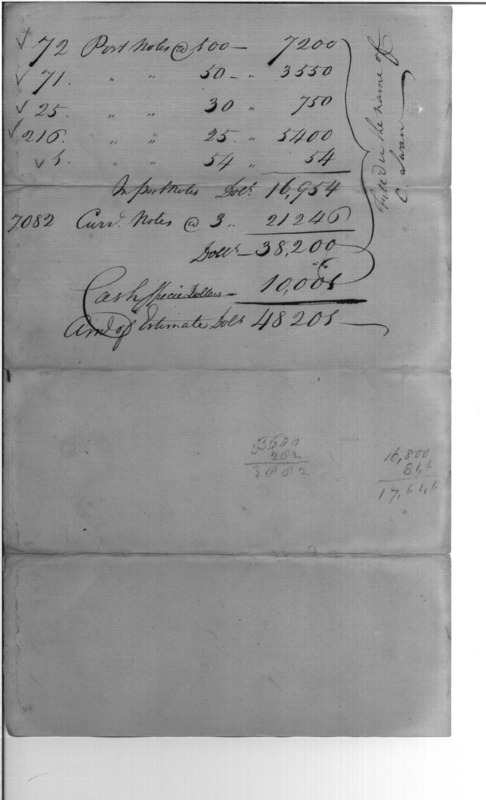 ✓ 72 Post Notes @ 100 — 7200
✓ 71. " " 50 — " 3550
✓ 25. " " 30 " 750
✓ 216. " " 25 " 5400
✓ 1. " " 54 " 54
In post Notes Doll.s 16,954
7082 Curr.t Notes @ 3 .. 21246
Doll.s — 38,200
Cash Specie Dollars — 10,005
Am.t of Estimate Dol.s 48205 —
Filled in the name of
C. Swan
3500
202
3002
16,800
846
17,646